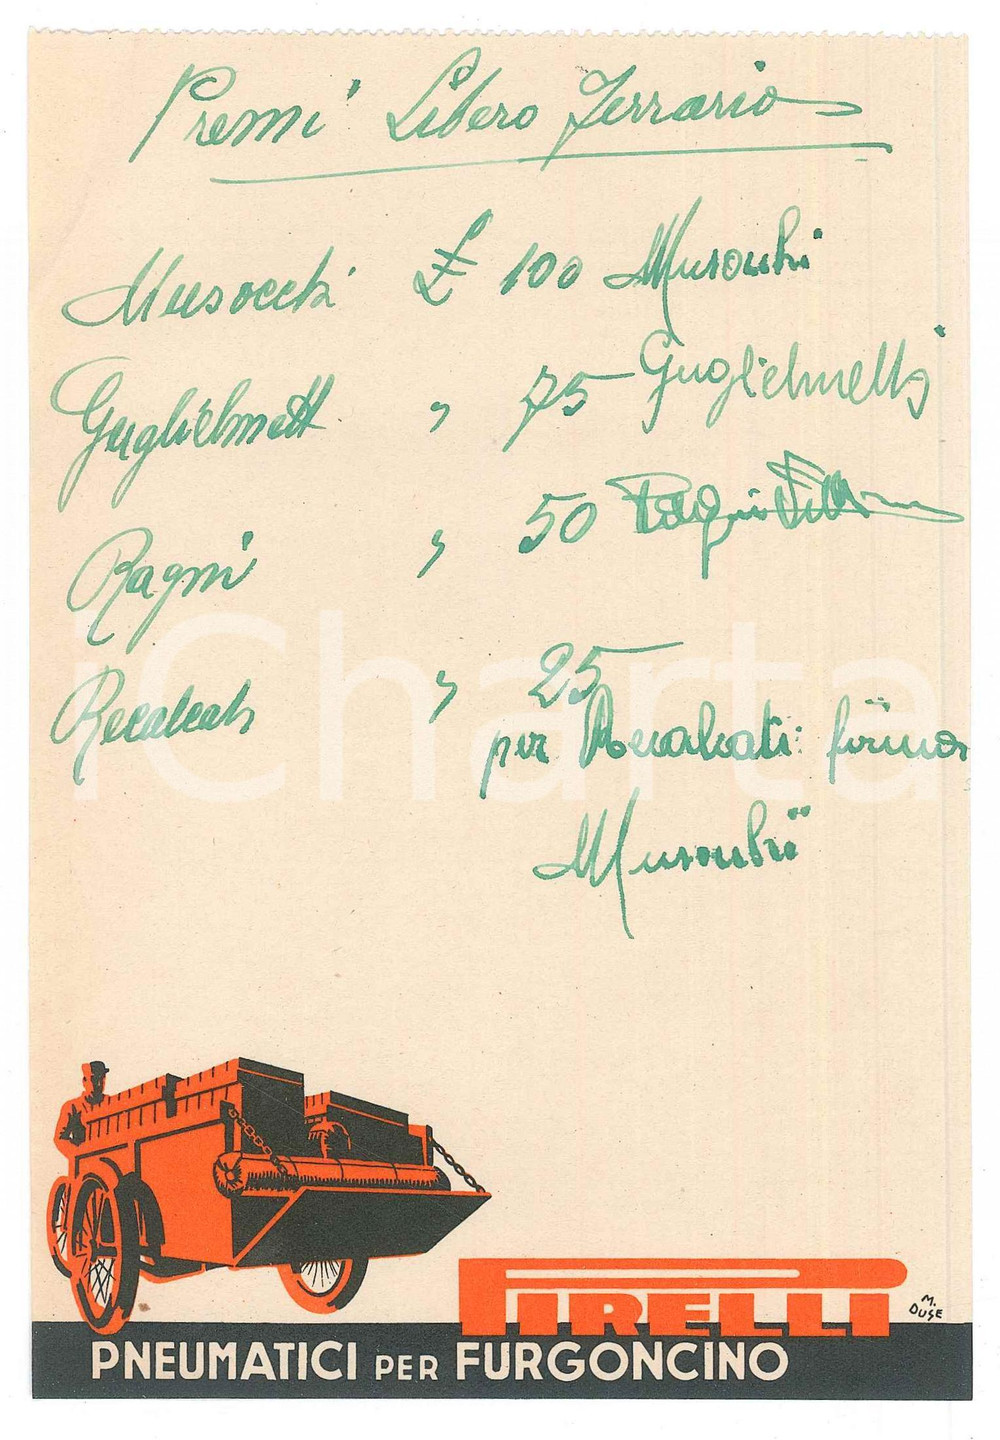 Premi Libero Ferrario
Musocchi £ 100 Musocchi
Guglielmetti " 75 Guglielmetti
Ragni " 50 Ragni
Recalcati " 25
per Recalcati: firma
Musocchi
iCharta
PIRELLI
M. DUSE
PNEUMATICI PER FURGONCINO